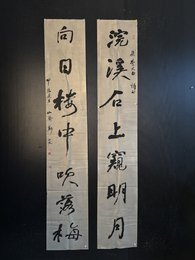 浣溪石上窺明月
向日樓中吹落梅